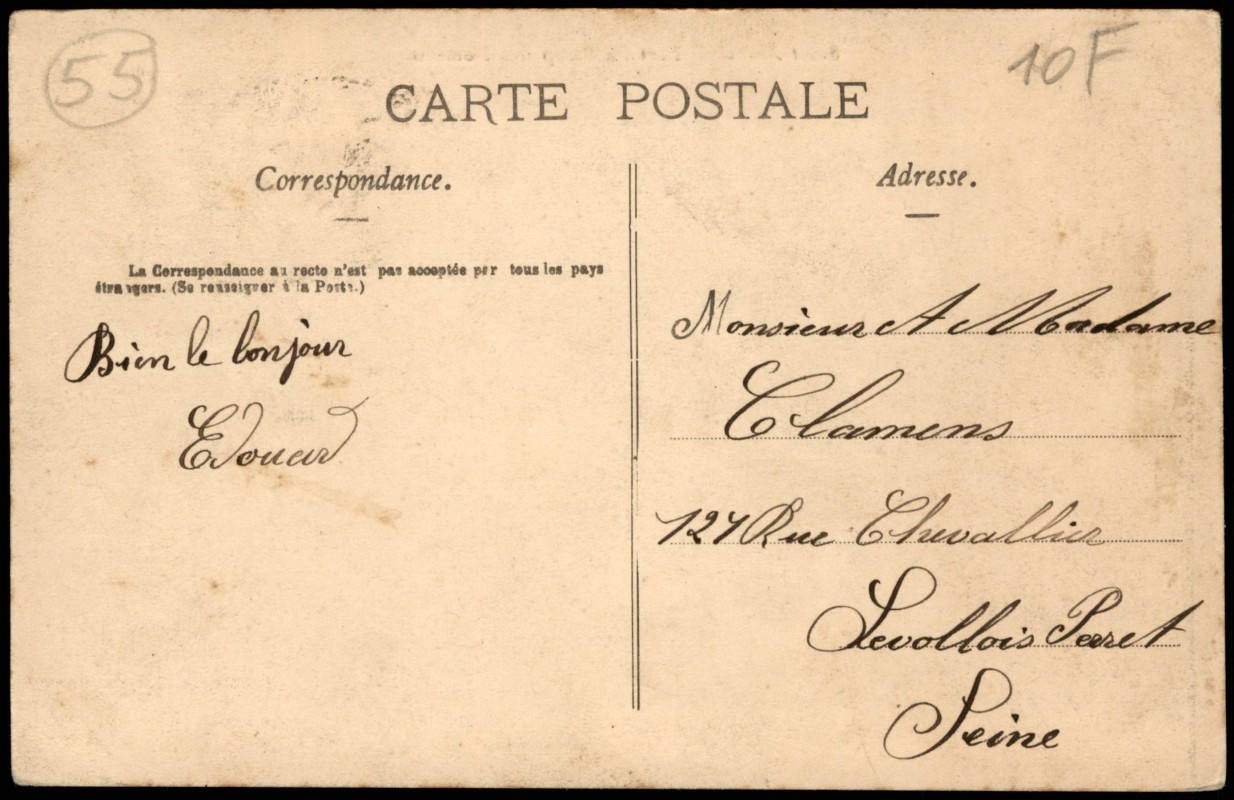 55
10F
CARTE POSTALE
Correspondance.
Adresse.
La Correspondance au recto n'est pas acceptée par tous les pays
étrangers. (Se renseigner à la Poste.)
Bien le bonjour
Edouard
Monsieur A Madame
Clamens
127 Rue Chevallier
Levollois Perret
Seine